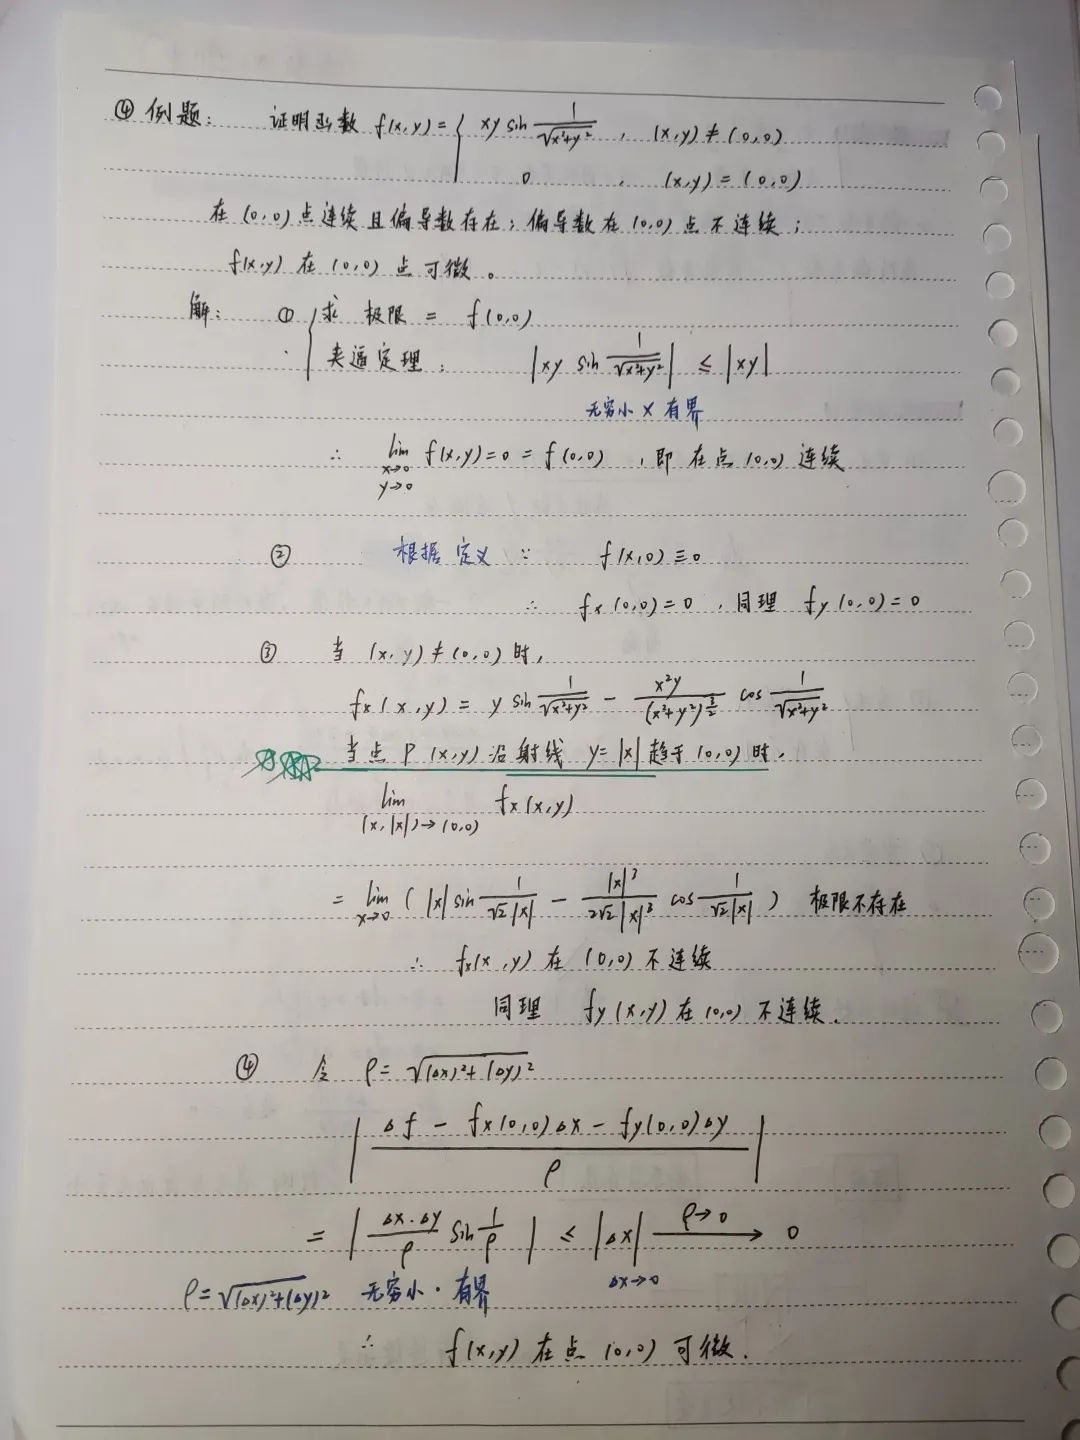 ④ 例题： 证明函数 f(x,y) = { xy sin 1/√(x²+y²) ， (x,y) ≠ (0,0)
0 ， (x,y) = (0,0)
在 (0,0) 点连续且偏导数存在；偏导数在 (0,0) 点不连续；
f(x,y) 在 (0,0) 点可微。
解： ① { 求 极限 = f(0,0)
夹逼定理： |xy sin 1/√(x²+y²)| ≤ |xy|
无穷小 × 有界
∴ lim f(x,y) = 0 = f(0,0) ，即 在点 (0,0) 连续
x→0
y→0
② 根据 定义 ∵ f(x,0) ≡ 0
∴ fx(0,0) = 0 ，同理 fy(0,0) = 0
③ 当 (x,y) ≠ (0,0) 时，
fx(x,y) = y sin 1/√(x²+y²) − x²y/(x²+y²)^(3/2) cos 1/√(x²+y²)
当点 P (x,y) 沿射线 y = |x| 趋于 (0,0) 时，
lim fx(x,y)
(x,|x|)→(0,0)
= lim ( |x| sin 1/(√2|x|) − |x|³/(2√2|x|³) cos 1/(√2|x|) ) 极限不存在
x→0
∴ fx(x,y) 在 (0,0) 不连续
同理 fy(x,y) 在 (0,0) 不连续.
④ 令 ρ = √((Δx)²+(Δy)²)
| (Δf − fx(0,0)Δx − fy(0,0)Δy)/ρ |
= | (Δx·Δy)/ρ sin 1/ρ | ≤ |Δx| ρ→0 → 0
ρ = √((Δx)²+(Δy)²) 无穷小 · 有界 Δx→0
∴ f(x,y) 在点 (0,0) 可微.